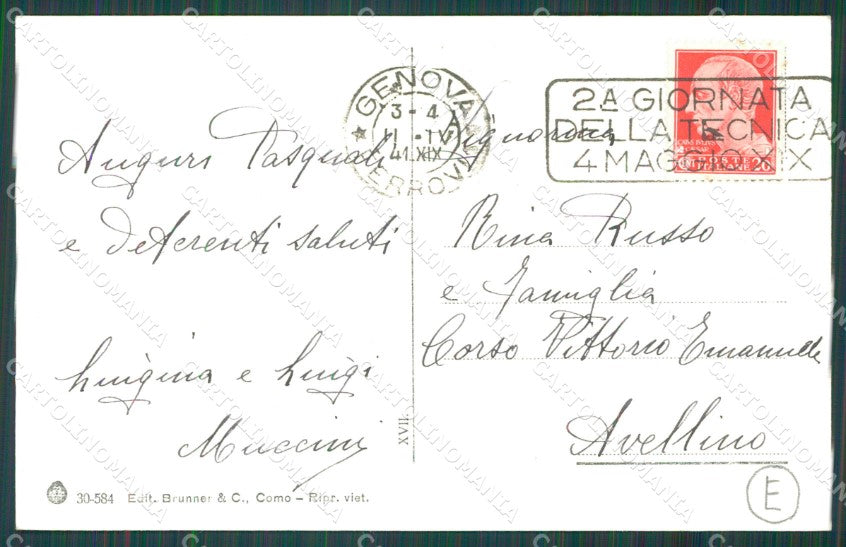 GENOVA
3-4
11-IV
41.XIX
FERROVIA
2ª GIORNATA
DELLA TECNICA
4 MAGGIO XIX
POSTE
ITALIANE 20
Auguri Pasquali
e deferenti saluti
Luigina e Luigi
Muccini
Signorina
Rina Russo
e Famiglia
Corso Vittorio Emanuele
Avellino
XVII.
30-584 Edit. Brunner & C., Como – Ripr. viet.
E
CARTOLINOMANIA